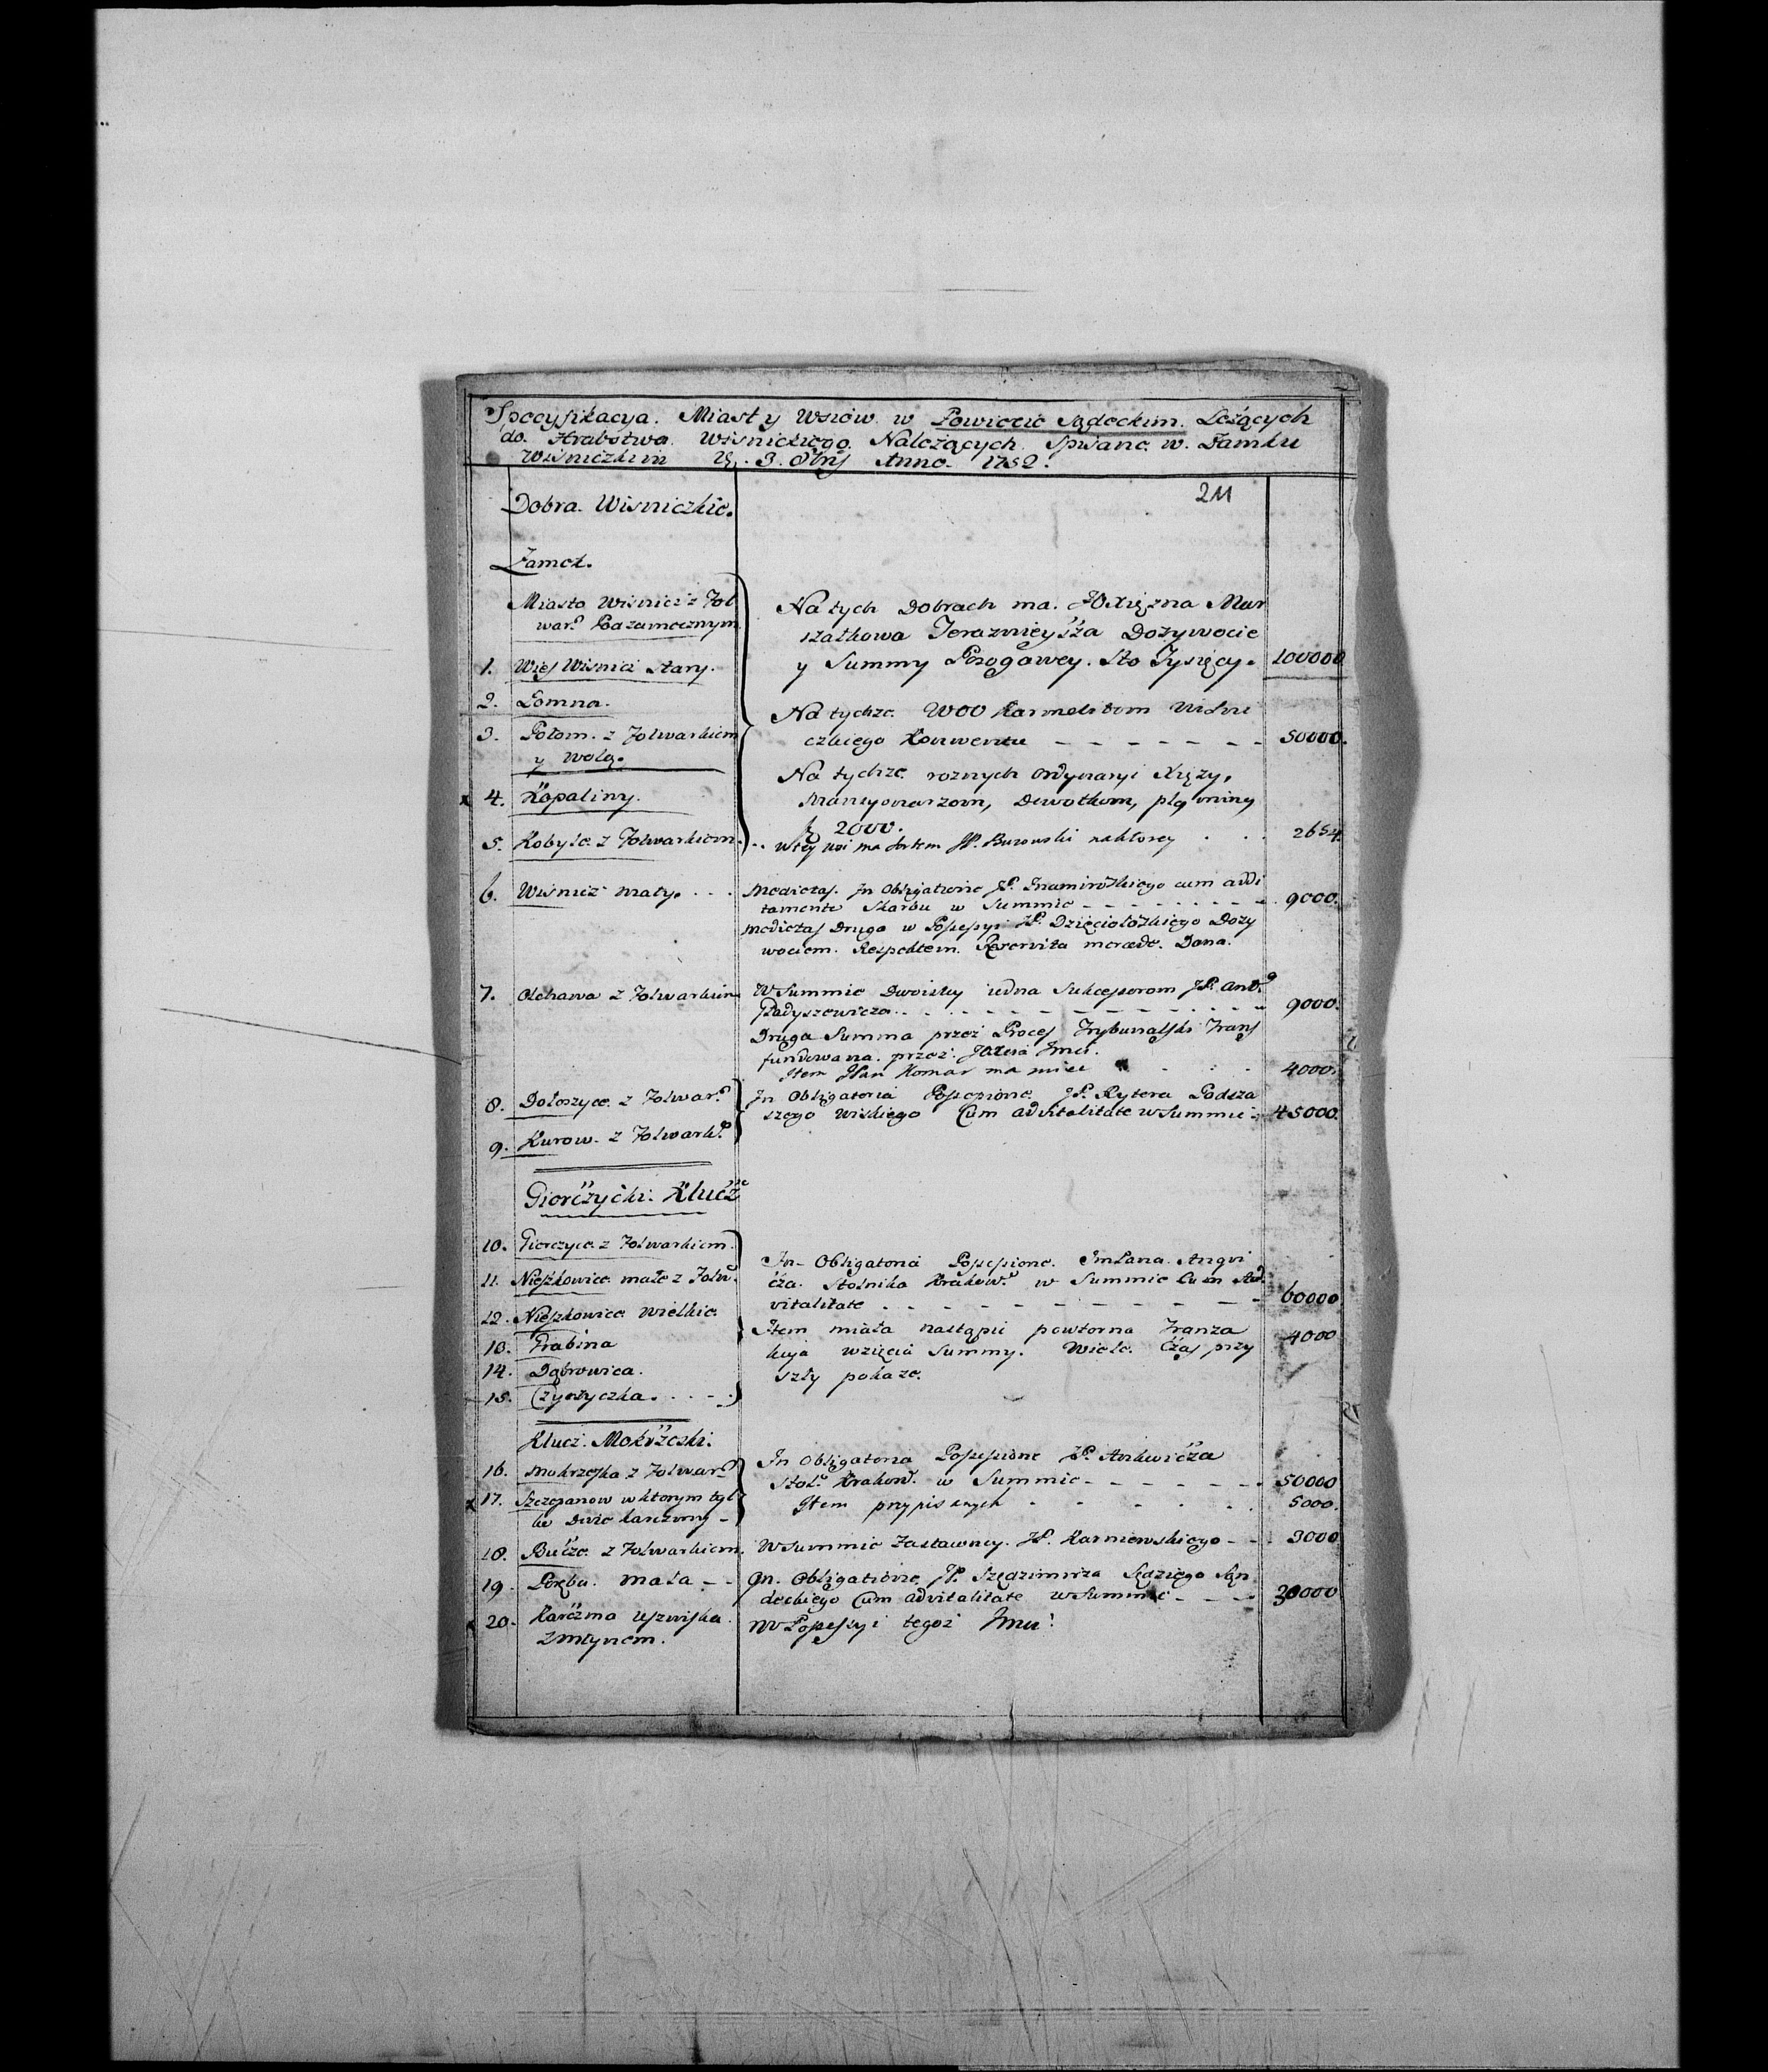 Specyfikacya. Miast y Wsiów w Powiecie Sądeckim. Leżących
do. Hrabstwa. Wisnickiego. Nalezących. Spisane. w. Zamku
Wisniczkim 3. 8brij Anno. 1752.
211
Dobra. Wisniczkie.
Zamek.
Miasto Wisnicz z Fol
war. Pazamecznym
Na tych Dobrach ma. JOXiężna Mar
szałkowa Teraznieysza Dozywocie
1. Wieś Wisnicz Stary.
y Summy Posogowey. Sto Tysięcy. 100000
2. Łomna.
Na tychze. WOO Karmelitom Wisni
3. Połom. z Folwarkiem
y Wolą.
czkiego Konwentu 50000.
Na tychze. roznych Ordynaryi Xięzy,
x 4. Kopaliny.
Mancyonarzom, Dewotkom, płą
2000.
5. Kobyle z Folwarkiem.
w tey wsi ma JP. Burowski na ktorey 2654.
6. Wisnicz Mały.
Medietas. In Obligatione JP. cum addi
tamento Skarbu w Summie 9000.
Medietas Druga w Possessyi JP. Dzięciołowskiego Dozy
wociem. Respektem. Reservita mercede. Dana.
7. Olchawa z Folwarkiem
W Summie Dwoistey iedna Sukcessorom JP. And.
Gładyszewicza 9000.
Druga Summa przez Proces Trybunalski Trans
fundowana. przez. Jmci.
Item JPan Komar ma miec 4000.
8. Dołoszyce. z Folwar.
In Obligatoria Possessione. JP. Rytera Podcza
szego Wiskiego Cum advitalitate w Summie 45000.
9. Kurow. z Folwark.
Gierczycki. Klucz
10. Gierczyce. z Folwarkiem.
In Obligatoria Possessione. ImPana. Ankwi
11. Nieszkowice. małe z Folw.
cza. Stolnika Krakow. w Summie Cum Ad
vitalitate 60000
12. Nieszkowice. Wielkie.
Item miała nastąpic powtorna Tranza
13. Grabina
kcja wzięcia Summy. Wiele. Czas przy 4000
14. Dąbrowica.
szły pokaze.
15. Czyżyczka.
Klucz. Mokrzeski.
16. Mokrzeska z Folwar.
In Obligatoria Possessione JP. Ankwicza
Stol. Krakow. w Summie 50000
x 17. Szczepanow w ktorym tyl
ko Dwie karczmy
Item przypisanych 5000.
18. Bucze. z Folwarkiem.
W Summie Zastawney. JP. Karniewskiego 3000
19. Poręba. Mała
In. Obligatione. JP. Szędzimirza Sędziego Sąn
deckiego Cum advitalitate w Summie 30000
x 20. Karczma Uszwiska
z młynem.
W Possessyi tegoz Jmci.